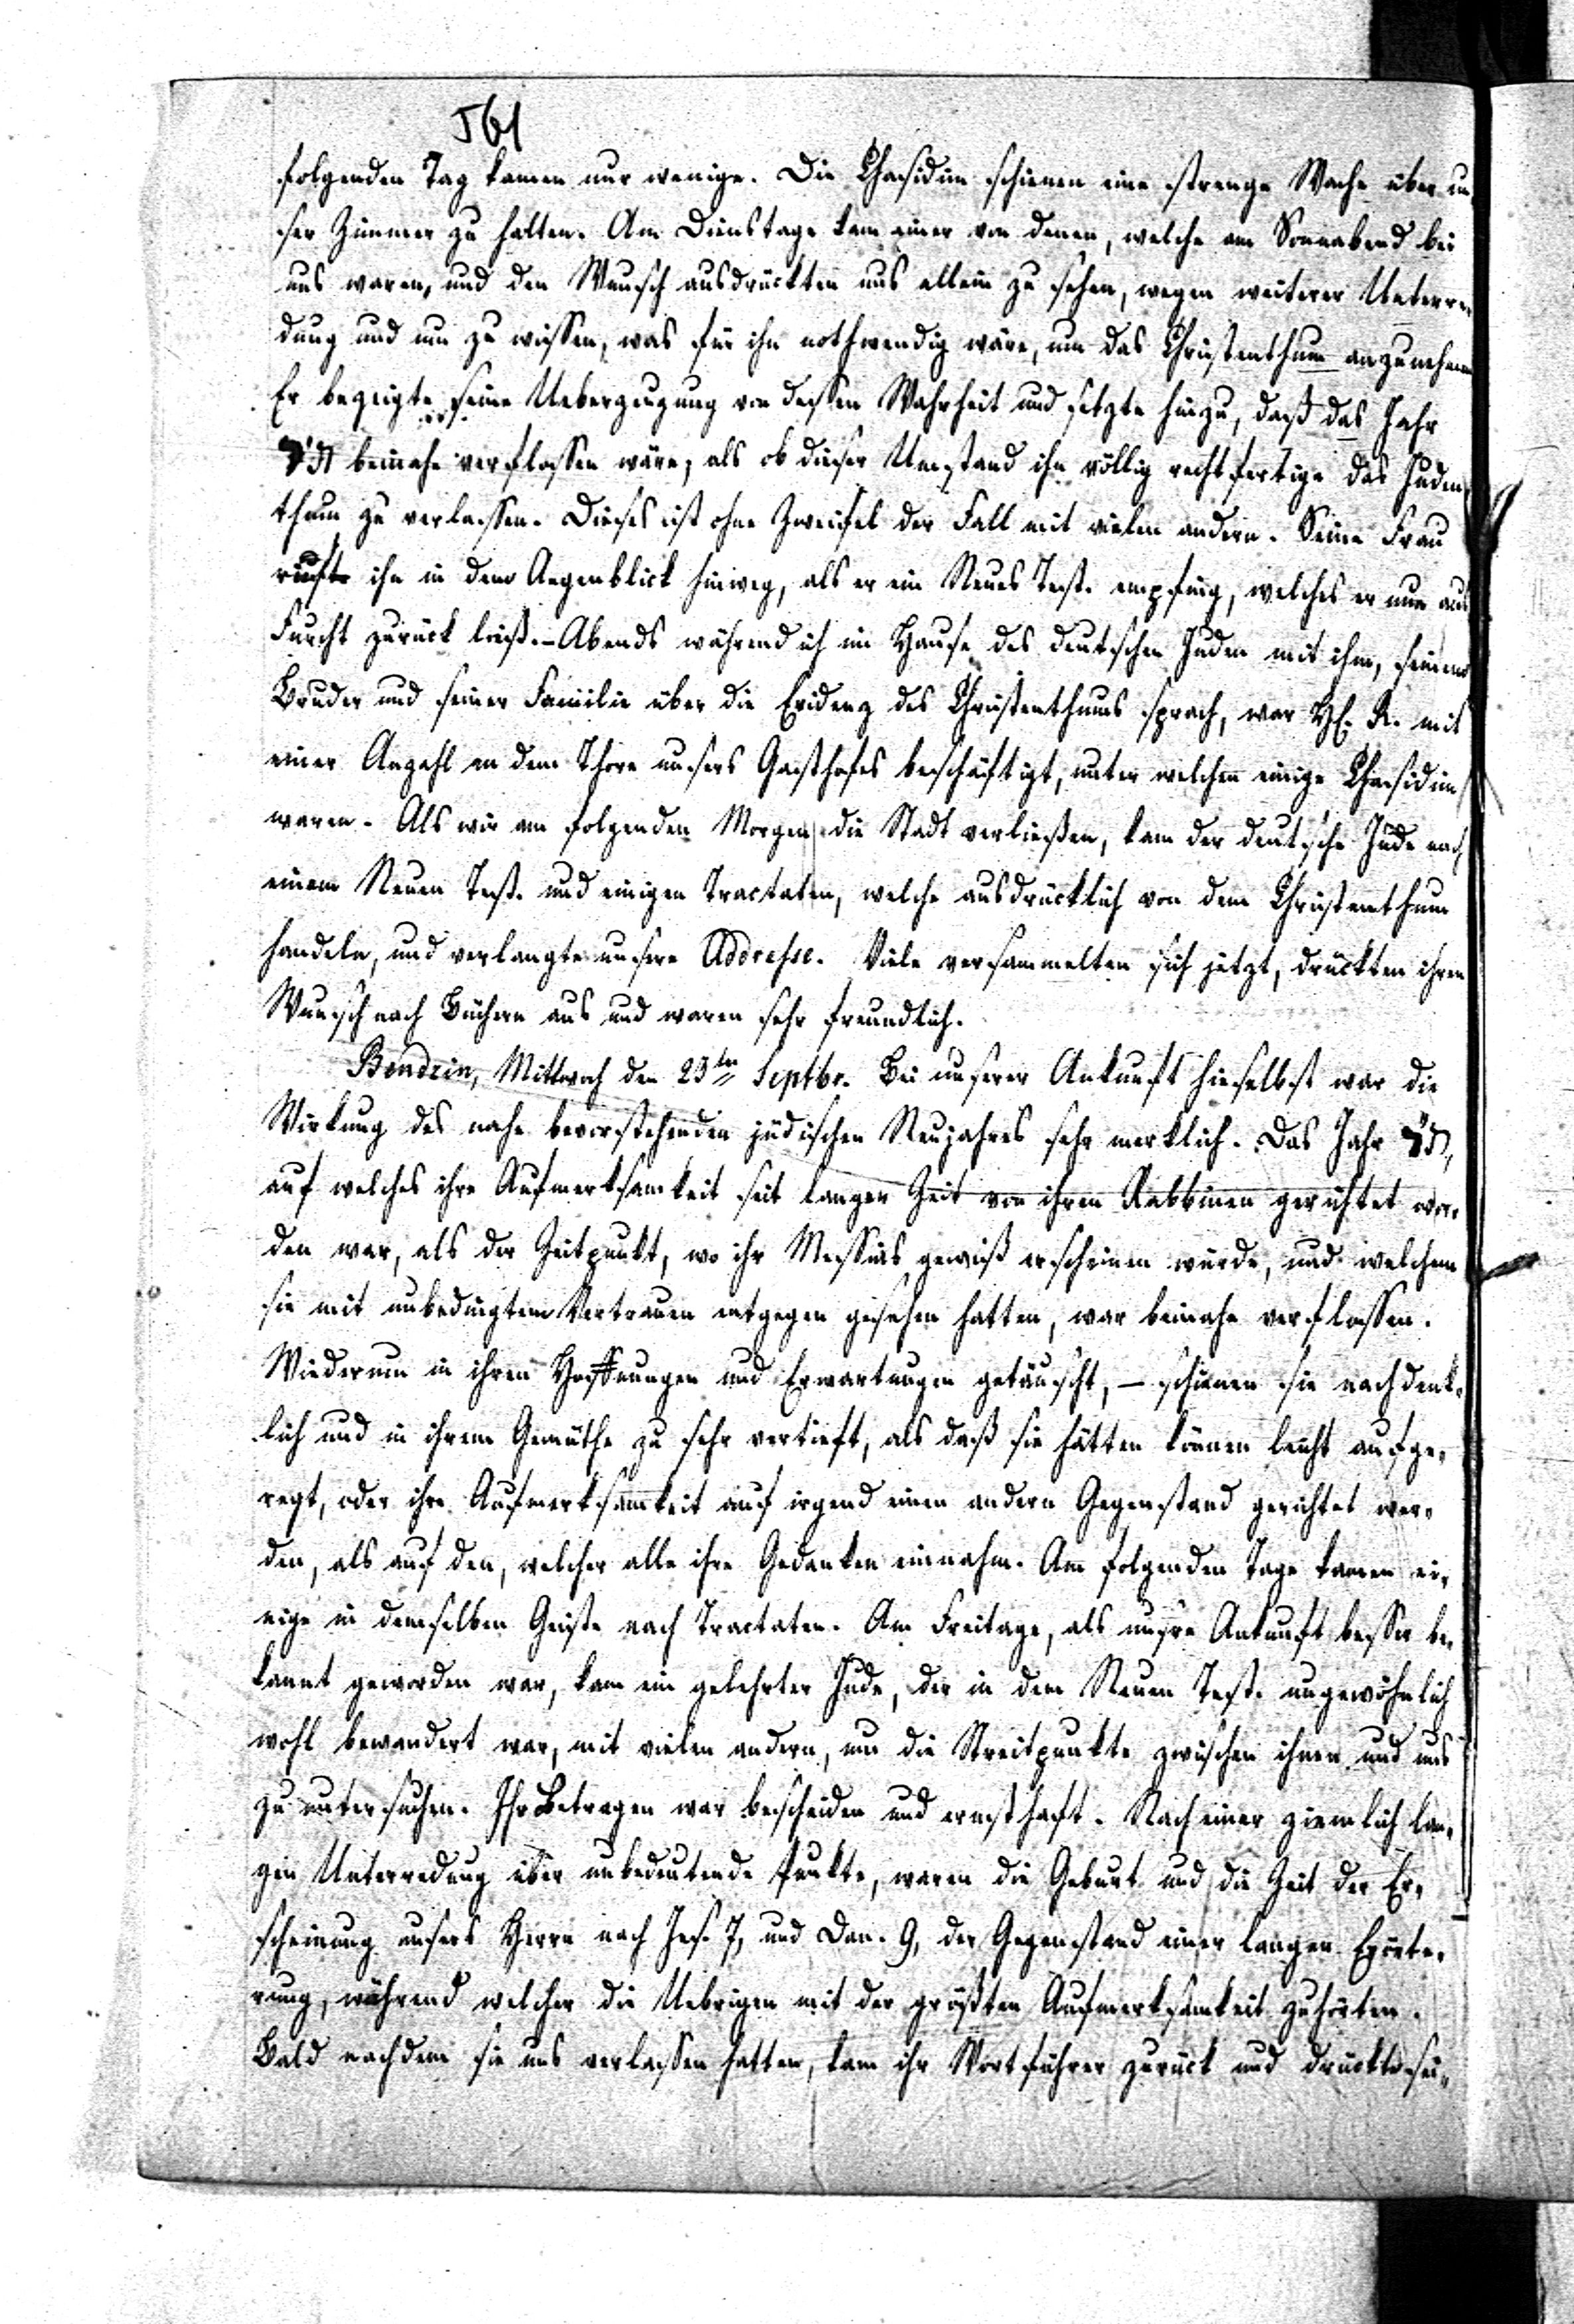 561
folgenden Tag kamen nur wenige. Die Chasidim schienen eine strenge Wache über un-
ser Zimmer zu halten. Am Dienstage kam einer von denen, welche am Sonnabend bei
uns waren, und den Wunsch ausdrückten uns allein zu sehen, wegen weiterer Unterre-
dung und um zu wissen, was für ihn nothwendig wäre, um das Christenthum anzunehmen
Er bezeigte seine Ueberzeugung von dessen Wahrheit und setzte hinzu, daß das Jahr
beinahe verflossen wäre, als ob dieser Umstand ihn völlig rechtfertige das Juden-
thum zu verlassen. Dieses ist ohne Zweifel der Fall mit vielen andern. Seine Frau
rufte ihn in dem Augenblick hinweg, als er ein Neues Test. empfing, welches er nun aus
Furcht zurück ließ. – Abends während ich im Hause des deutschen Juden mit ihm, seinem
Bruder und seiner Familie über die Evidenz des Christenthums sprach, war H. R. mit
einer Anzahl an dem Thore unsers Gasthofes beschäftigt, unter welchen einige Chasidim
waren. Als wir am folgenden Morgen die Stadt verließen, kam der deutsche Jude nach
einem Neuen Test. und einigen Tractaten, welche ausdrücklich von dem Christenthum
handeln, und verlangte unsere Addresse. Viele versammelten sich jetzt, drückten ihren
Wunsch nach Büchern aus und waren sehr freundlich.
Bendzin, Mittwoch den 23ten Septbr. Bei unserer Ankunft hieselbst war die
Wirkung des nahe bevorstehenden jüdischen Neujahres sehr merklich. Das Jahr
auf welches ihre Aufmerksamkeit seit langer Zeit von ihren Rabbinen gerichtet wor-
den war, als der Zeitpunkt, wo ihr Messias gewiß erscheinen würde, und welchem
sie mit unbedingtem Vertrauen entgegen gesehen hatten, war beinahe verflossen.
Wiederum in ihren Hoffnungen und Erwartungen getäuscht, – schienen sie nachdenk-
lich und in ihrem Gemüthe zu sehr vertieft, als daß sie hätten können leicht aufge-
regt, oder ihre Aufmerksamkeit auf irgend einen andern Gegenstand gerichtet wer-
den, als auf den, welcher alle ihre Gedanken einnahm. Am folgenden Tage kamen ei-
nige in demselben Geiste nach Tractaten. Am Freitage, als unsre Ankunft besser be-
kannt geworden war, kam ein gelehrter Jude, der in dem Neuen Test. ungewöhnlich
wohl bewandert war, mit vielen andern, um die Streitpunkte zwischen ihnen und uns
zu untersuchen. Ihr Betragen war bescheiden und ernsthaft. Nach einer ziemlich lan-
gen Unterredung über unbedeutende Punkte, waren die Geburt und die Zeit der Er-
scheinung unsers Herrn nach Jes. 7, und Dan. 9, der Gegenstand einer langen Erörte-
rung, während welcher die Uebrigen mit der größten Aufmerksamkeit zuhörten.
Bald nachdem sie uns verlassen hatten, kam ihr Wortführer zurück und drückte sei-